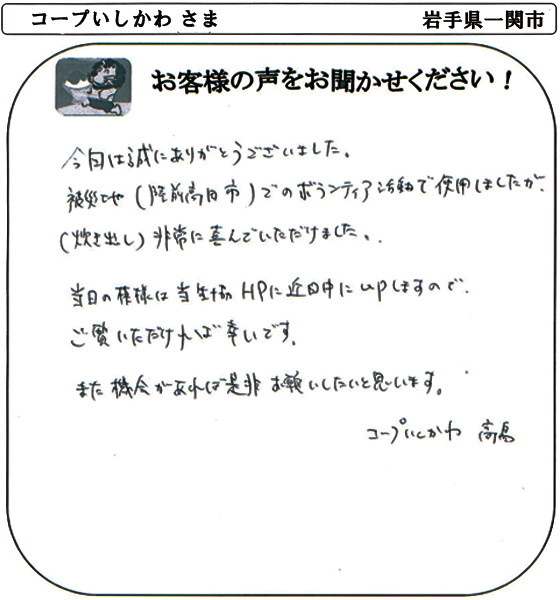 コープいしかわ さま
岩手県一関市
お客様の声をお聞かせください！
今回は誠にありがとうございました。
被災地や(陸前高田市)でのボランティア活動で使用しましたが、
(炊き出し)非常に喜んでいただけました。
当日の模様は当生協HPに近日中にupしますので、
ご覧いただければ幸いです。
また機会があれば是非お願いしたいと思います。
コープいしかわ 高島